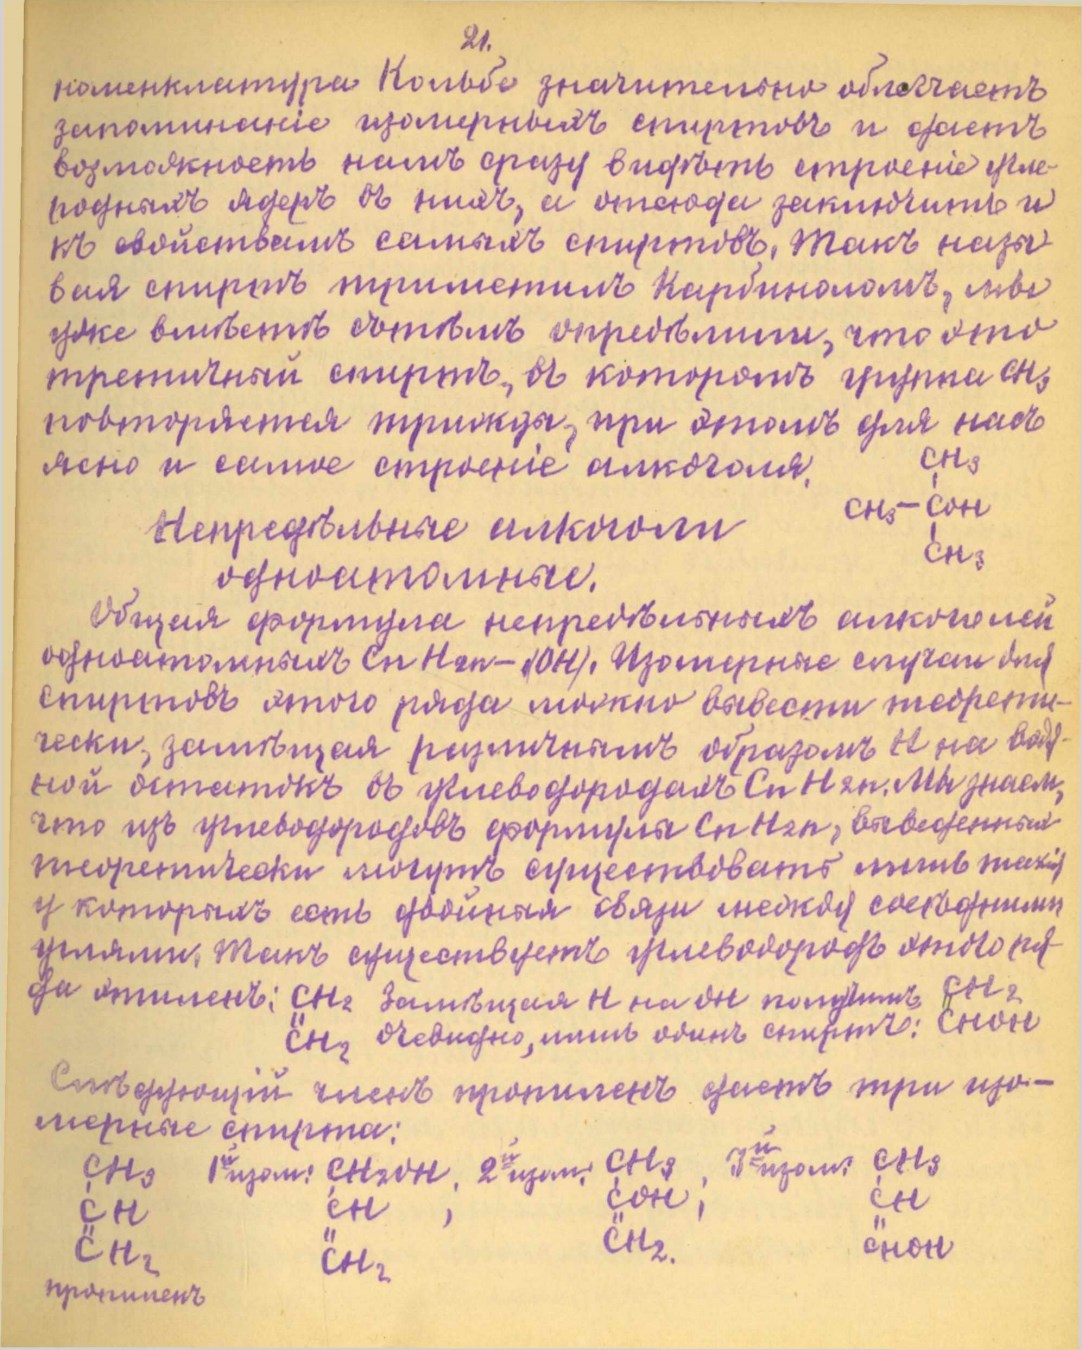 21.
номенклатура Кольбе значительно облегчаетъ
запоминаніе изомерныхъ спиртовъ и даетъ
возможность намъ сразу видѣть строеніе угле-
родныхъ ядеръ въ нихъ, а отсюда заключить и
къ свойствамъ самыхъ спиртовъ. Такъ назы-
вая спиртъ триметилъ Карбиноломъ, мы
уже вмѣстѣ съ тѣмъ опредѣлили, что это
третичный спиртъ, въ которомъ группа CH3
повторяется трижды, при этомъ для насъ
ясно и самое строеніе алкоголя.
CH3
CH3–COH
CH3
Непредѣльные алкоголи
одноатомные.
Общая формула непредѣльныхъ алкоголей
одноатомныхъ CnH2n–1(OH). Изомерные случаи для
спиртовъ этого ряда можно вывести теорети-
чески, замѣщая различнымъ образомъ H на вод-
ной остатокъ въ углеводородахъ CnH2n. Мы знаем,
что изъ углеводородовъ формулы CnH2n, выведенныхъ
теоретически могутъ существовать лишь такія
у которыхъ есть двойныя связи между сосѣдними
углями. Такъ существуетъ углеводородъ этого ря-
да этиленъ: CH2 Замѣщая H на OH получимъ CH2
CH2 очевидно, лишь одинъ спиртъ: CHOH
Слѣдующій членъ пропиленъ даетъ три изо-
мерные спирта:
CH3 1й изом: CH2OH, 2й изом: CH3, 3й изом: CH3
CH CH ; COH ; CH
CH2 CH2 CH2. CHOH
пропиленъ